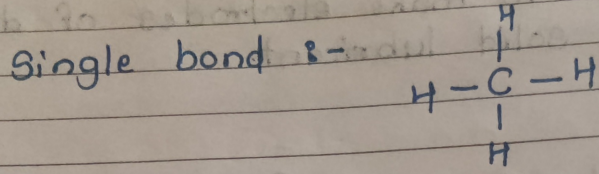 Single bond :-
H
H - C - H
H